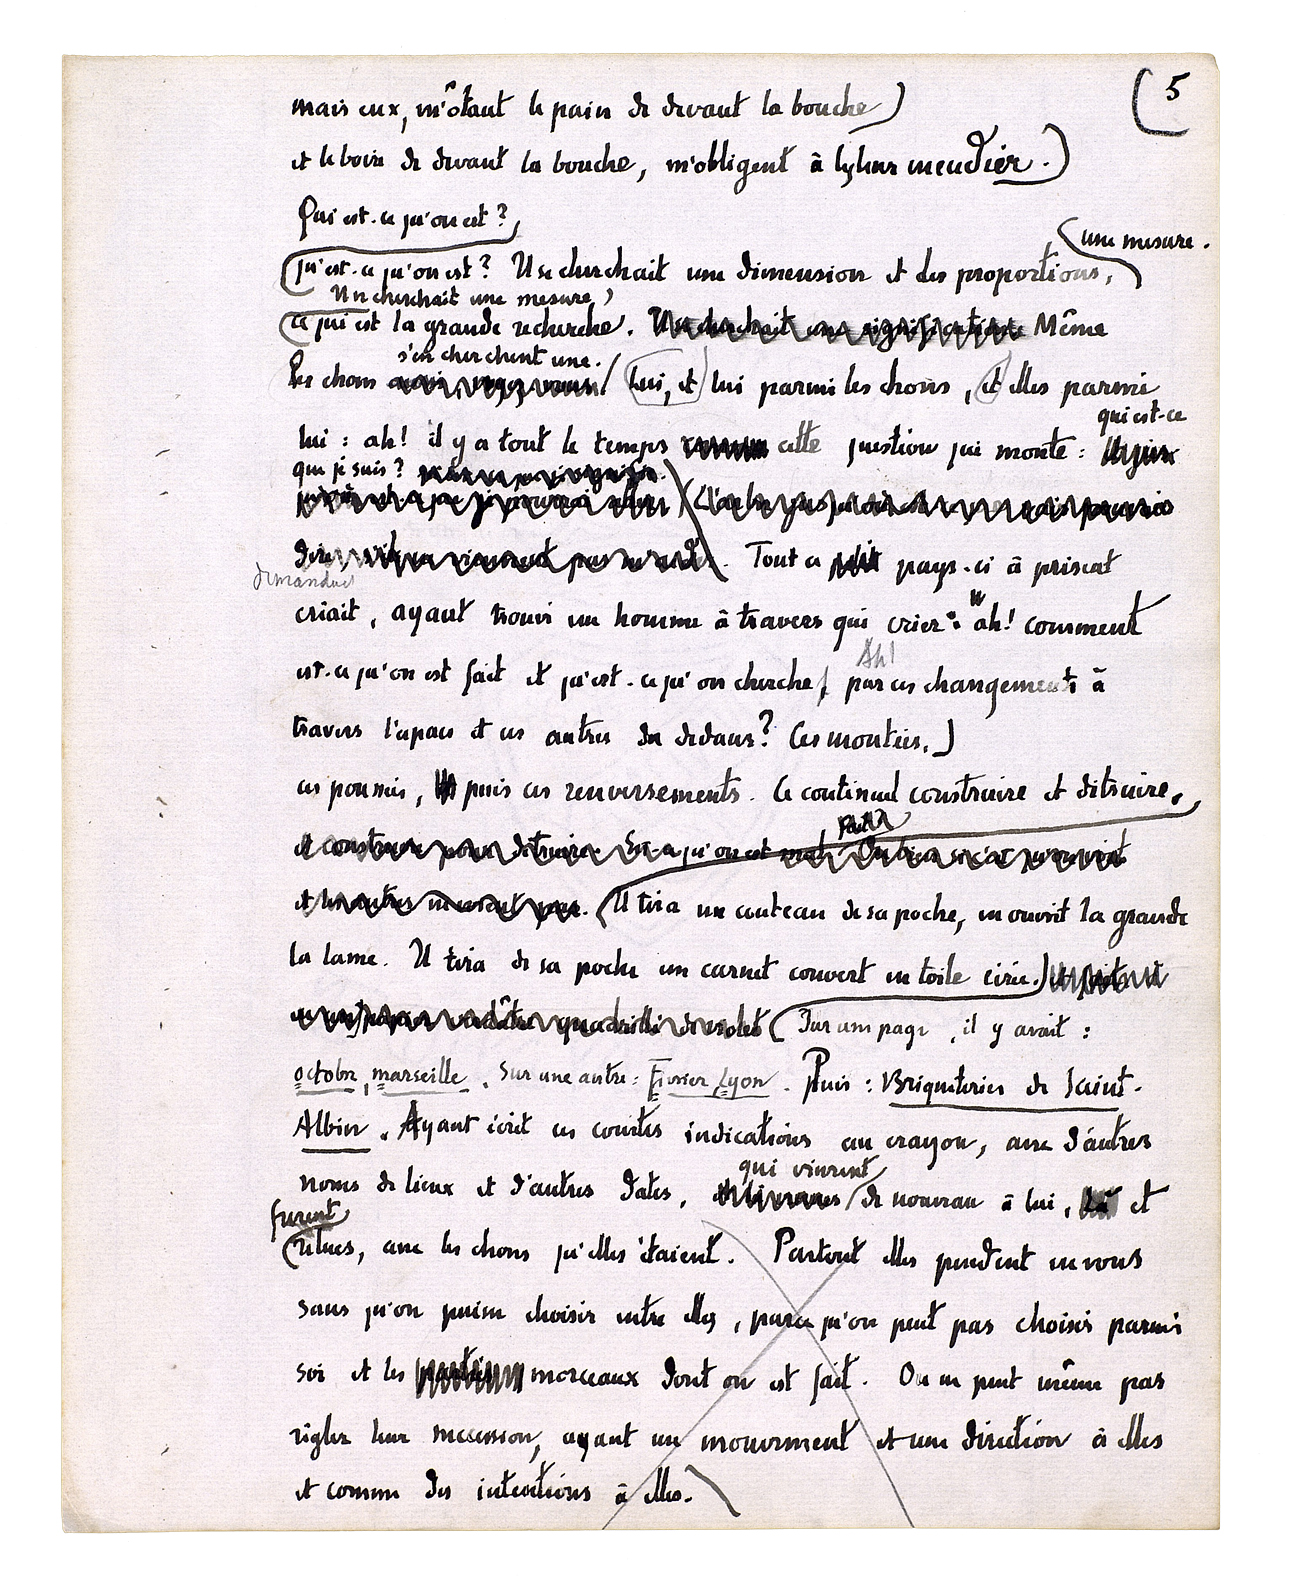 (5
mais eux, m'ôtant le pain de devant la bouche)
et le boire de devant la bouche, m'obligent à le leur mendier.)
Qui est-ce qu'on est ?
une mesure.
qu'est-ce qu'on est ? Il se cherchait une dimension et des proportions,
Il se cherchait une mesure,
ce qui est la grande recherche. Il se cherchait une signification. Même
s'en cherchent une.
les choses / Lui, et lui parmi les choses, et elles parmi
qui est-ce
lui : ah! il y a tout le temps cette question qui monte :
que je suis ?
dire, Tout ce petit pays-ci à présent
demandait
criait, ayant trouvé un homme à travers qui crier : " ah! comment
Ah!
est-ce qu'on est fait et qu'est-ce qu'on cherche, par ces changements à
travers l'espace et ces autres du dedans? Ces montées,)
ces poussées, puis ces renversements. Ce continuel construire et détruire,
fait
et construire pour détruire. Est-ce qu'on est mal
et les autres ne seront pas. (Il tira un couteau de sa poche, en ouvrit la grande
la lame. Il tira de sa poche un carnet couvert en toile cirée.)
quadrillé de violet (Sur une page, il y avait :
octobre, marseille. Sur une autre : Février, Lyon. Puis : Briqueteries de Saint-
Albin. Ayant écrit ces courtes indications au crayon, avec d'autres
qui vinrent
noms de lieux et d'autres dates, de nouveau à lui, et
furent
relues, avec les choses qu'elles étaient. Partout elles pendent en vous
sans qu'on puisse choisir entre elles, parce qu'on peut pas choisir parmi
soi et les parties morceaux dont on est fait. On ne peut même pas
régler leur succession, ayant un mouvement et une direction à elles
et comme des intentions à elles.